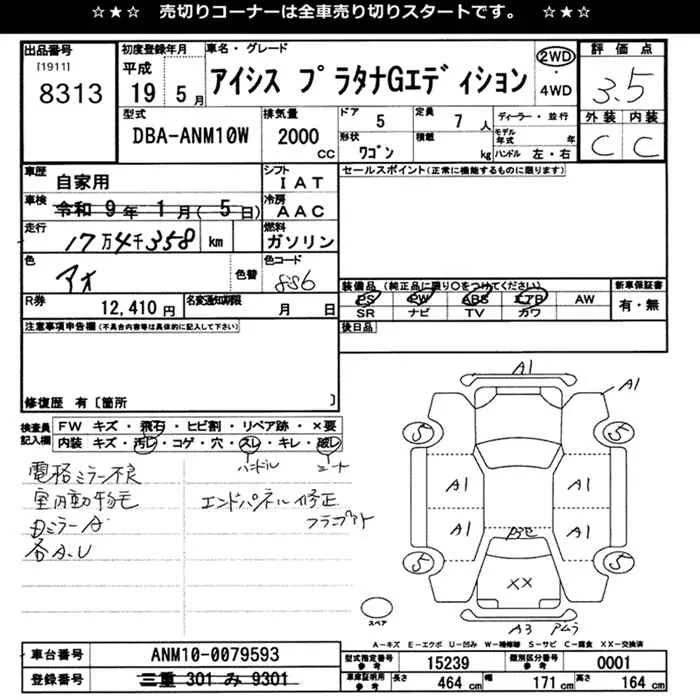 ☆★☆ 売切りコーナーは全車売り切りスタートです。 ☆★☆
出品番号
[1911]
8313
初度登録年月
平成
19 5月
車名・グレード
アイシス プラタナGエディション
2WD
・
4WD
評価点
3.5
外装 内装
C C
型式
DBA-ANM10W
排気量
2000
cc
ドア 5
定員 7人
形状 ワゴン
積載 kg
ディーラー・並行
モデル年式 年
ハンドル 左・右
車歴
自家用
シフト
IAT
車検
令和 9年 1月( 5日)
冷房
AAC
走行
17万4千358 km
燃料
ガソリン
色
色替
色コード
R券
12,410円
名変通知期限
月 日
セールスポイント(正常に機能するものに限ります)
装備品(純正品に限り○をつけてください)
PS PW ABS エアB AW
SR ナビ TV カワ
新車保証書
有・無
後日品
注意事項申告欄(不具合内容等は具体的に記入して下さい)
修復歴 有〔箇所 〕
検査員
記入欄
FW キズ・飛石・ヒビ割・リペア跡・×要
内装 キズ・汚レ・コゲ・穴・スレ・キレ・破レ
ハンドル シート
電格ミラー不良
室内動物毛
エンドパネル修正
各A.U
A1
A1
5 5
A1 A1
A1 A1
5 5
XX
スペア
A3
A-キズ E-エクボ U-凹み W-補修跡 S-サビ C-腐食 XX-交換済
車台番号
ANM10-0079593
登録番号
三重 301 み 9301
型式指定番号
参考
15239
類別区分番号
参考
0001
車庫証明用
参考
長さ 464 cm
幅 171 cm
高さ 164 cm